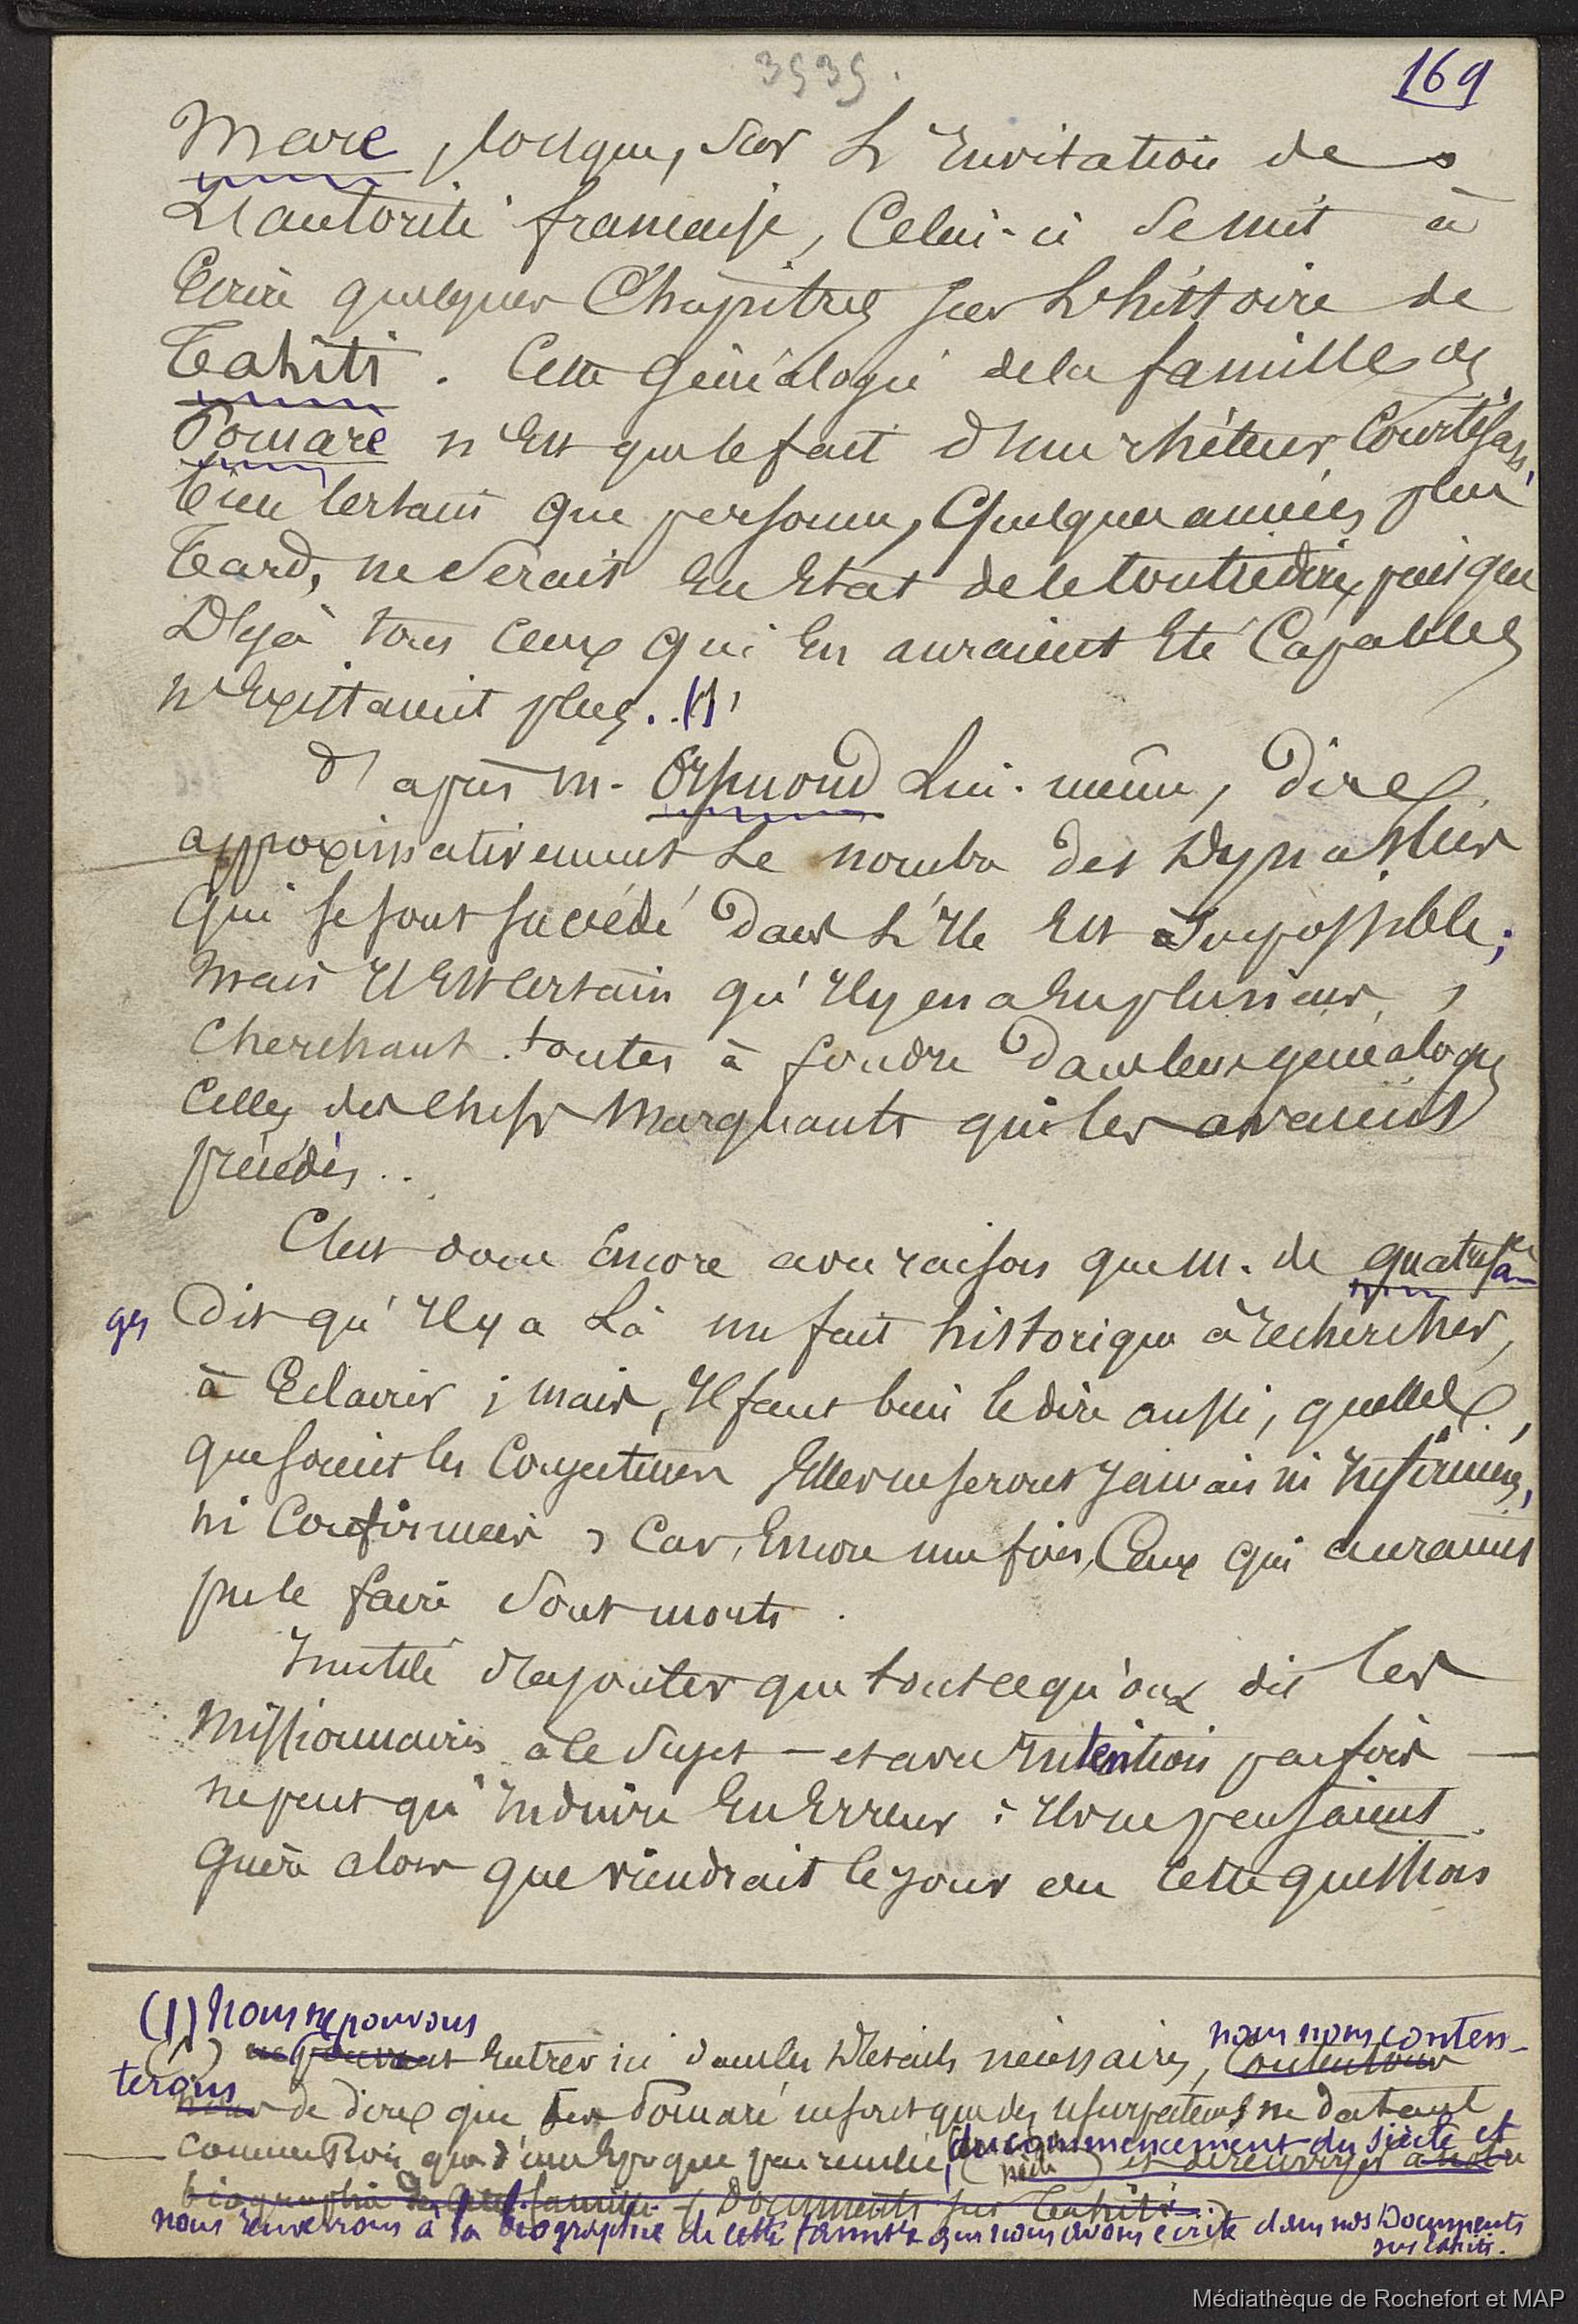 3535.
169
Mare, lorsque, sur l'Invitation de
L'autorité française, Celui-ci se mit à
Ecrire quelques Chapitres sur L'histoire de
Tahiti. Cette Généalogie de la famille des
Pomare n'Est que le fait d'un rhéteur Courtisan,
bien Certain que personne, Quelques années plus
Tard, ne Serait En Etat de le Contredire, puisque
Déjà tous ceux qui En auraient Eté Capables
N'Existaient plus.. (1)
D'après M. Orsmond Lui-même, Dire
approximativement Le nombre des Dynasties
Qui se sont succédé Dans L'Ile Est Impossible;
Mais Il Est Certain qu'Il y en a Eu plusieurs,
Cherchant toutes à fondre Dans leur généalogie
Celles des Chefs Marquants qui les avaient
précédés..
C'est donc Encore avec raison que M. de Quatrefa
ges Dit qu'Il y a Là un fait historique à rechercher,
à Eclaircir; mais, Il faut bien le dire aussi, quelles
que soient les Conjectures Elles ne seront Jamais ni Infirmées,
ni Confirmées, Car, Encore une fois, Ceux qui auraient
pu le faire Sont morts.
Inutile d'ajouter que tout ce qu'ont dit les
Missionnaires à ce Sujet — et avec Intention parfois —
ne peut qu'Induire En Erreur: Ils ne pensaient
Guère alors que viendrait le Jour où cette question
(1) Nous ne pouvons
(1) ne pouvant Entrer ici dans les Détails nécessaires, nous nous conten-
terons de dire que les Pomaré ne sont que des usurpateurs ne datant
Comme Rois que d'une Epoque peu reculée, du commencement du siècle et
biographie de cette famille. Documents sur Tahiti.
nous renverrons à la biographie de cette famille que nous avons écrite dans nos Documents
sur Tahiti.
Médiathèque de Rochefort et MAP